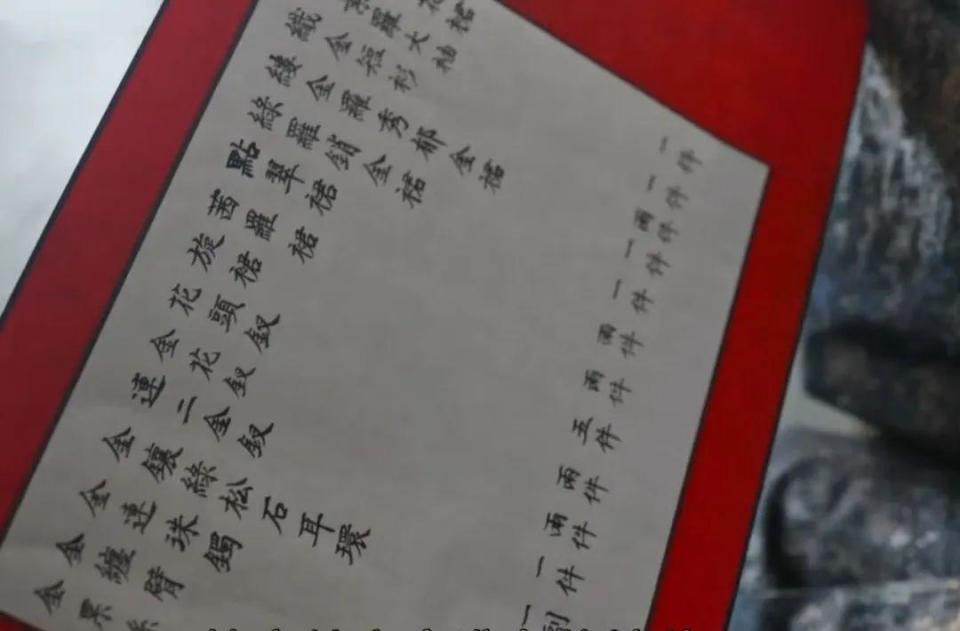 裙 一件
羅大袖 一件
織金短衫 兩件
縷金羅秀郁金裙 一件
綠羅銷金裙 一件
點翠裙 兩件
茜羅裙 兩件
旋裙 五件
花頭釵 兩件
金花釵 兩件
連二金釵 一件
金鑲綠松石耳環 一副
金連珠鐲
金纏臂
金累絲